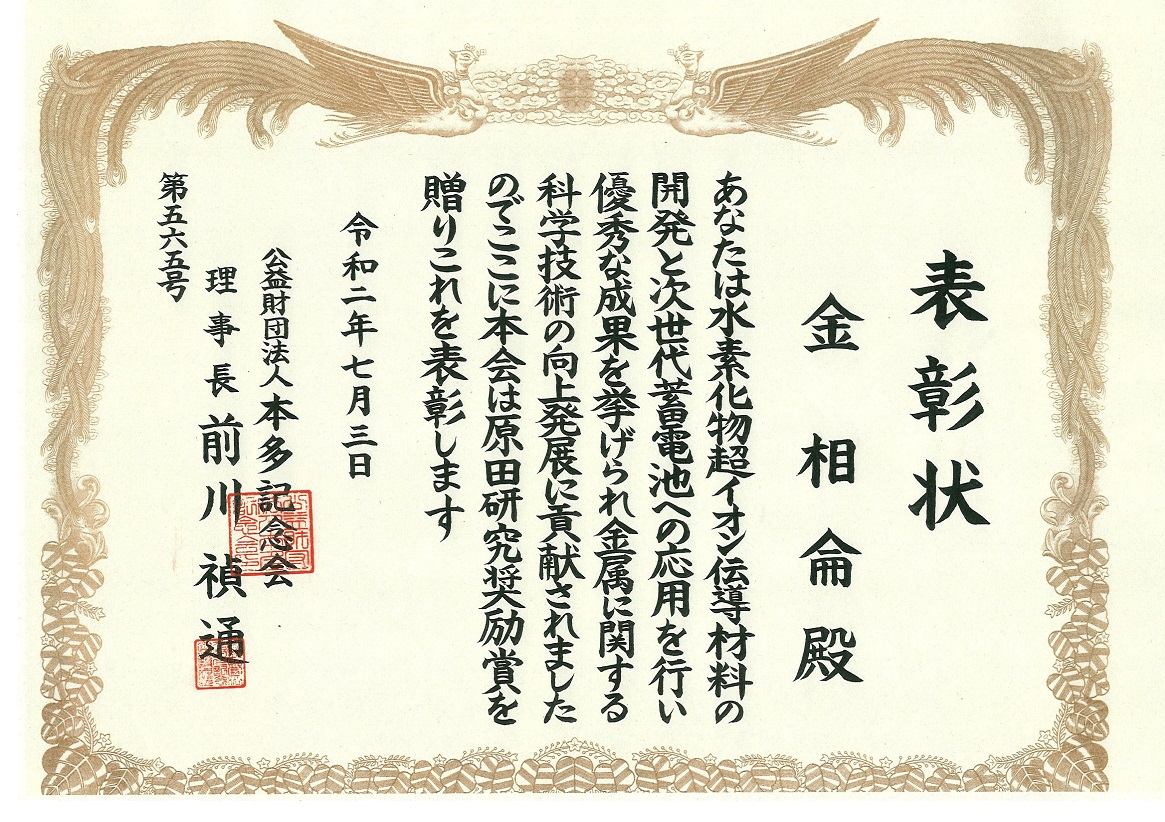 表彰状
金相侖殿
あなたは水素化物超イオン伝導材料の
開発と次世代蓄電池への応用を行い
優秀な成果を挙げられ金属に関する
科学技術の向上発展に貢献されました
のでここに本会は原田研究奨励賞を
贈りこれを表彰します
令和二年七月三日
公益財団法人本多記念会
理事長前川禎通
第五六五号